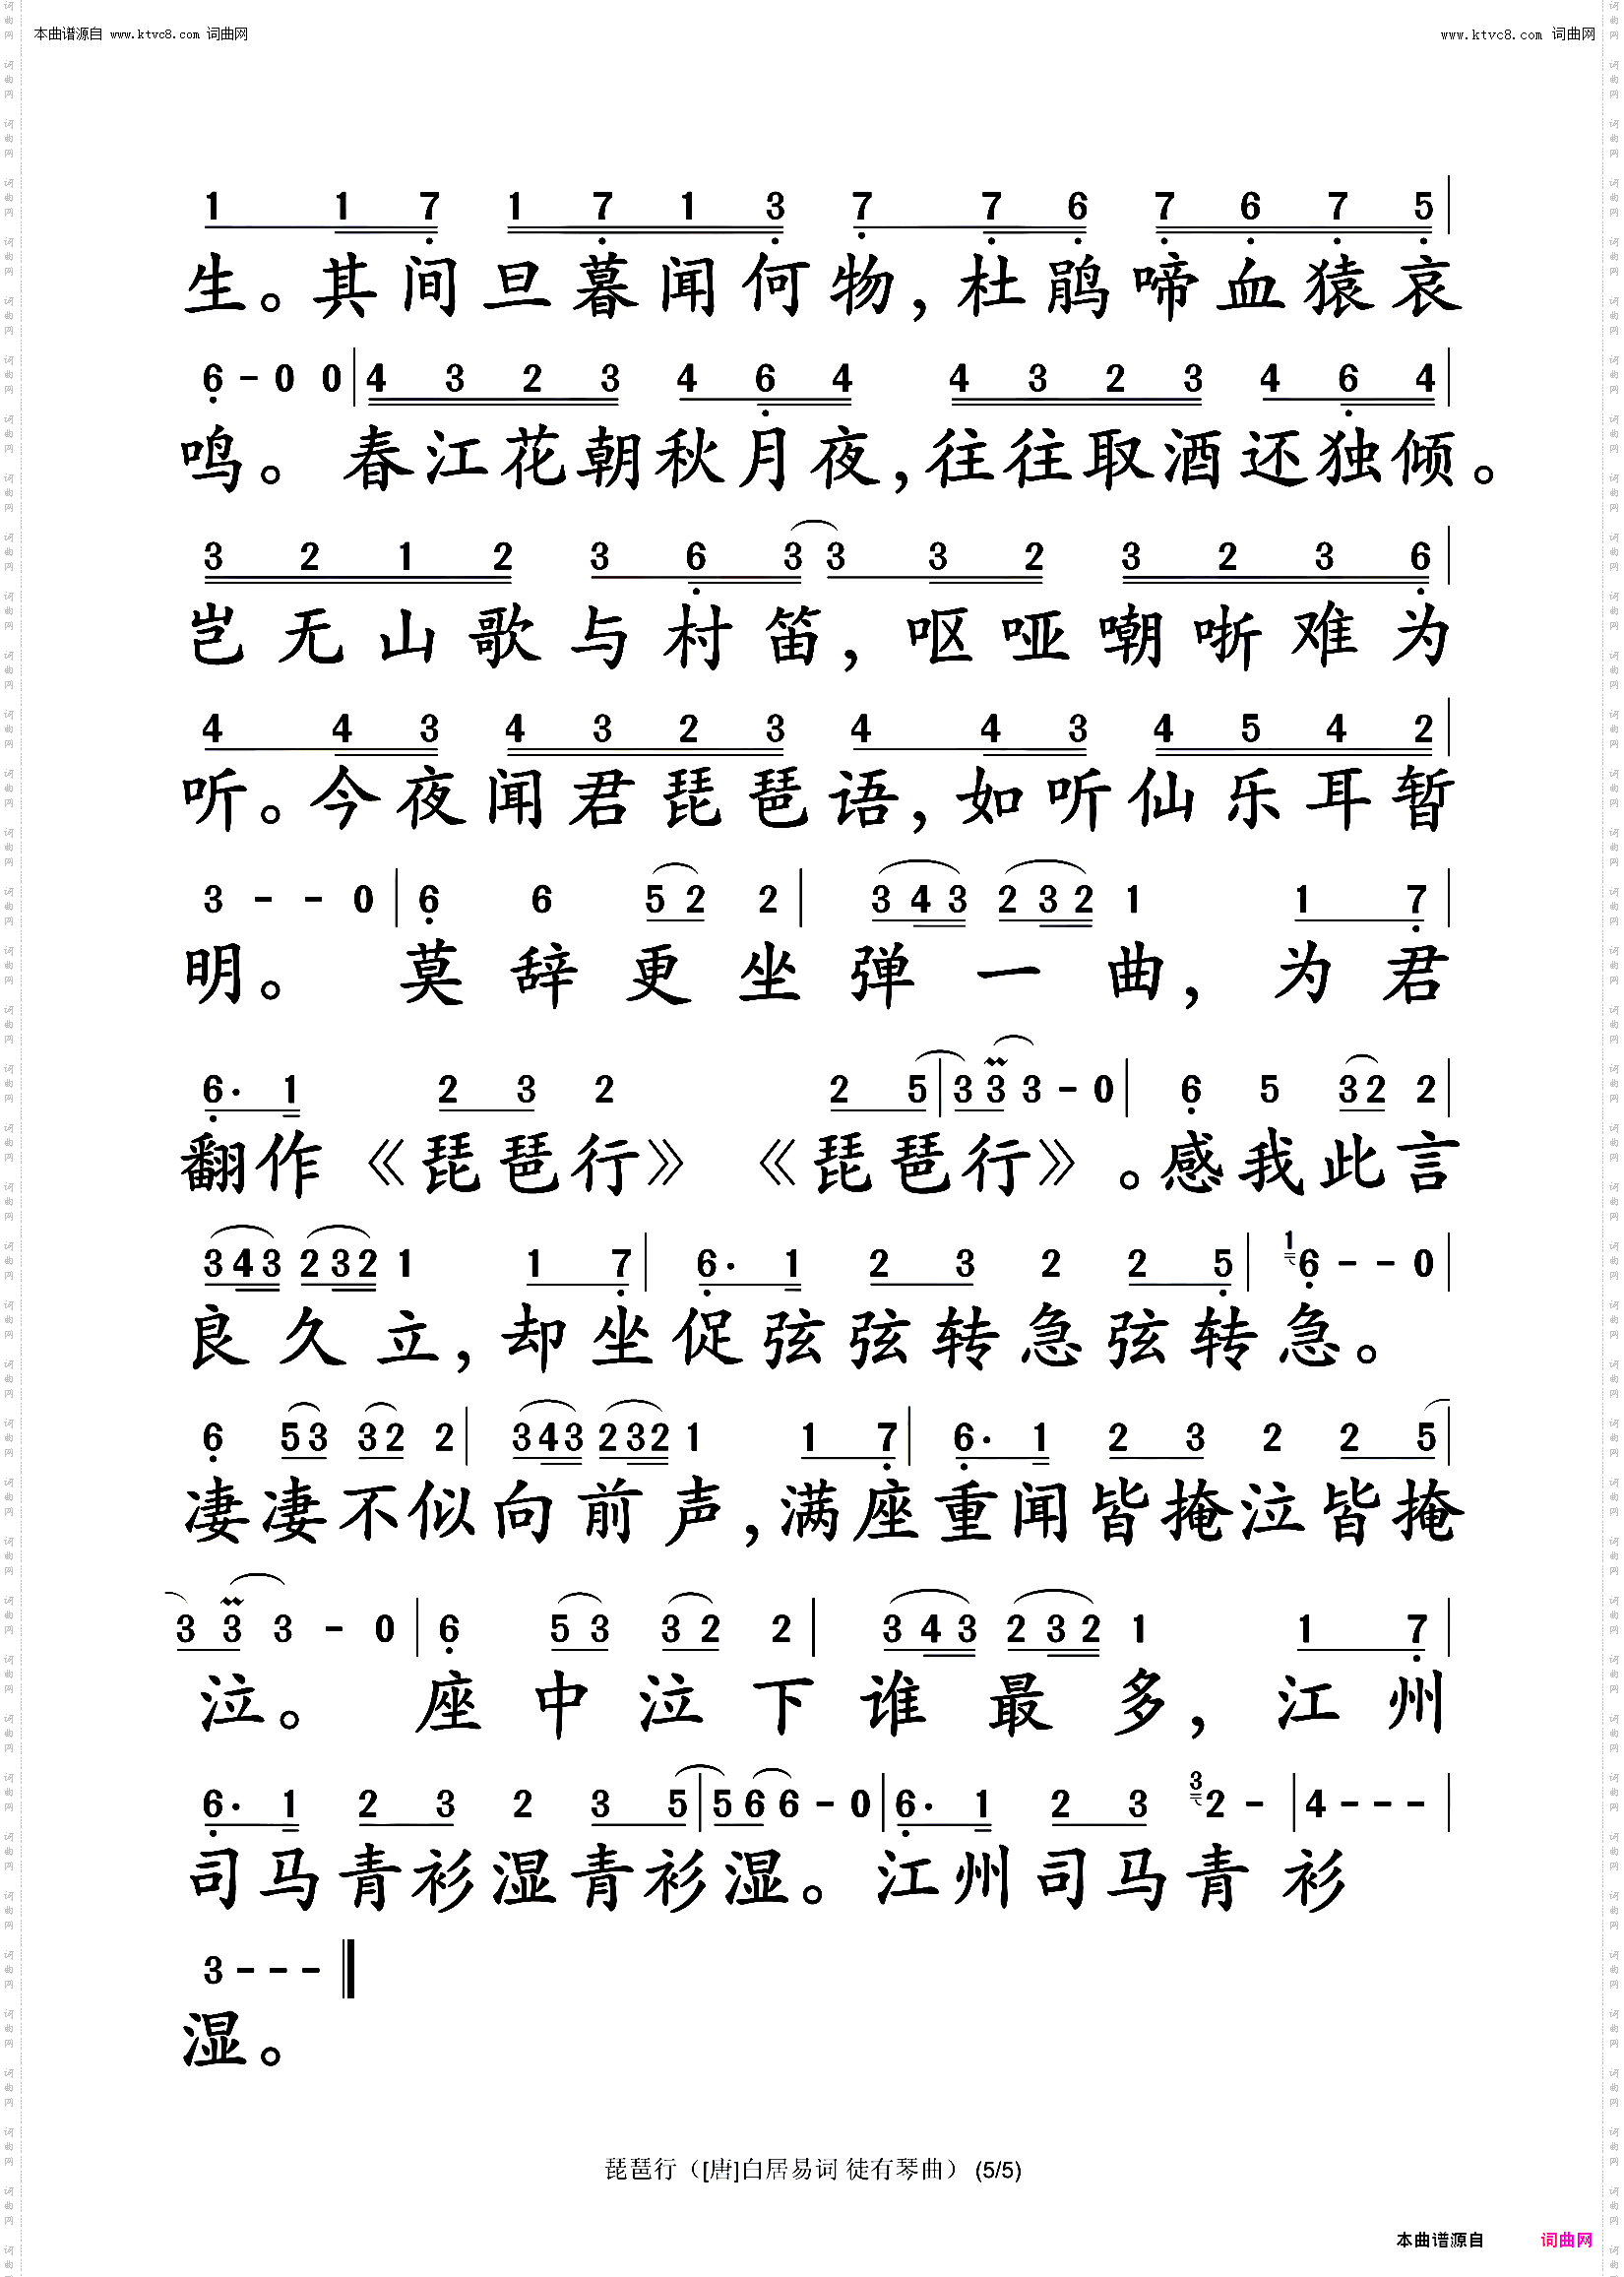 本曲谱源自 www.ktvc8.com 词曲网
www.ktvc8.com 词曲网
1 1 7 1 7 1 3 7 7 6 7 6 7 5
生。其间旦暮闻何物，杜鹃啼血猿哀
6 - 0 0 | 4 3 2 3 4 6 4 4 3 2 3 4 6 4
鸣。春江花朝秋月夜，往往取酒还独倾。
3 2 1 2 3 6 3 3 3 2 3 2 3 6 |
岂无山歌与村笛，呕哑嘲哳难为
4 4 3 4 3 2 3 4 4 3 4 5 4 2 |
听。今夜闻君琵琶语，如听仙乐耳暂
3 - - 0 | 6 6 5 2 2 | 3 4 3 2 3 2 1 1 7 |
明。莫辞更坐弹一曲，为君
6· 1 2 3 2 2 5 | 3 3 3 - 0 | 6 5 3 2 2 |
翻作《琵琶行》《琵琶行》。感我此言
3 4 3 2 3 2 1 1 7 | 6· 1 2 3 2 2 5 | 1 6 - - 0 |
良久立，却坐促弦弦转急弦转急。
6 5 3 3 2 2 | 3 4 3 2 3 2 1 1 7 | 6· 1 2 3 2 2 5 |
凄凄不似向前声，满座重闻皆掩泣皆掩
3 3 3 - 0 | 6 5 3 3 2 2 | 3 4 3 2 3 2 1 1 7 |
泣。座中泣下谁最多，江州
6· 1 2 3 2 3 5 | 5 6 6 - 0 | 6· 1 2 3 3 2 - | 4 - - - |
司马青衫湿青衫湿。江州司马青衫
3 - - - ‖
湿。
琵琶行（[唐]白居易词 徒有琴曲） (5/5)
本曲谱源自 词曲网